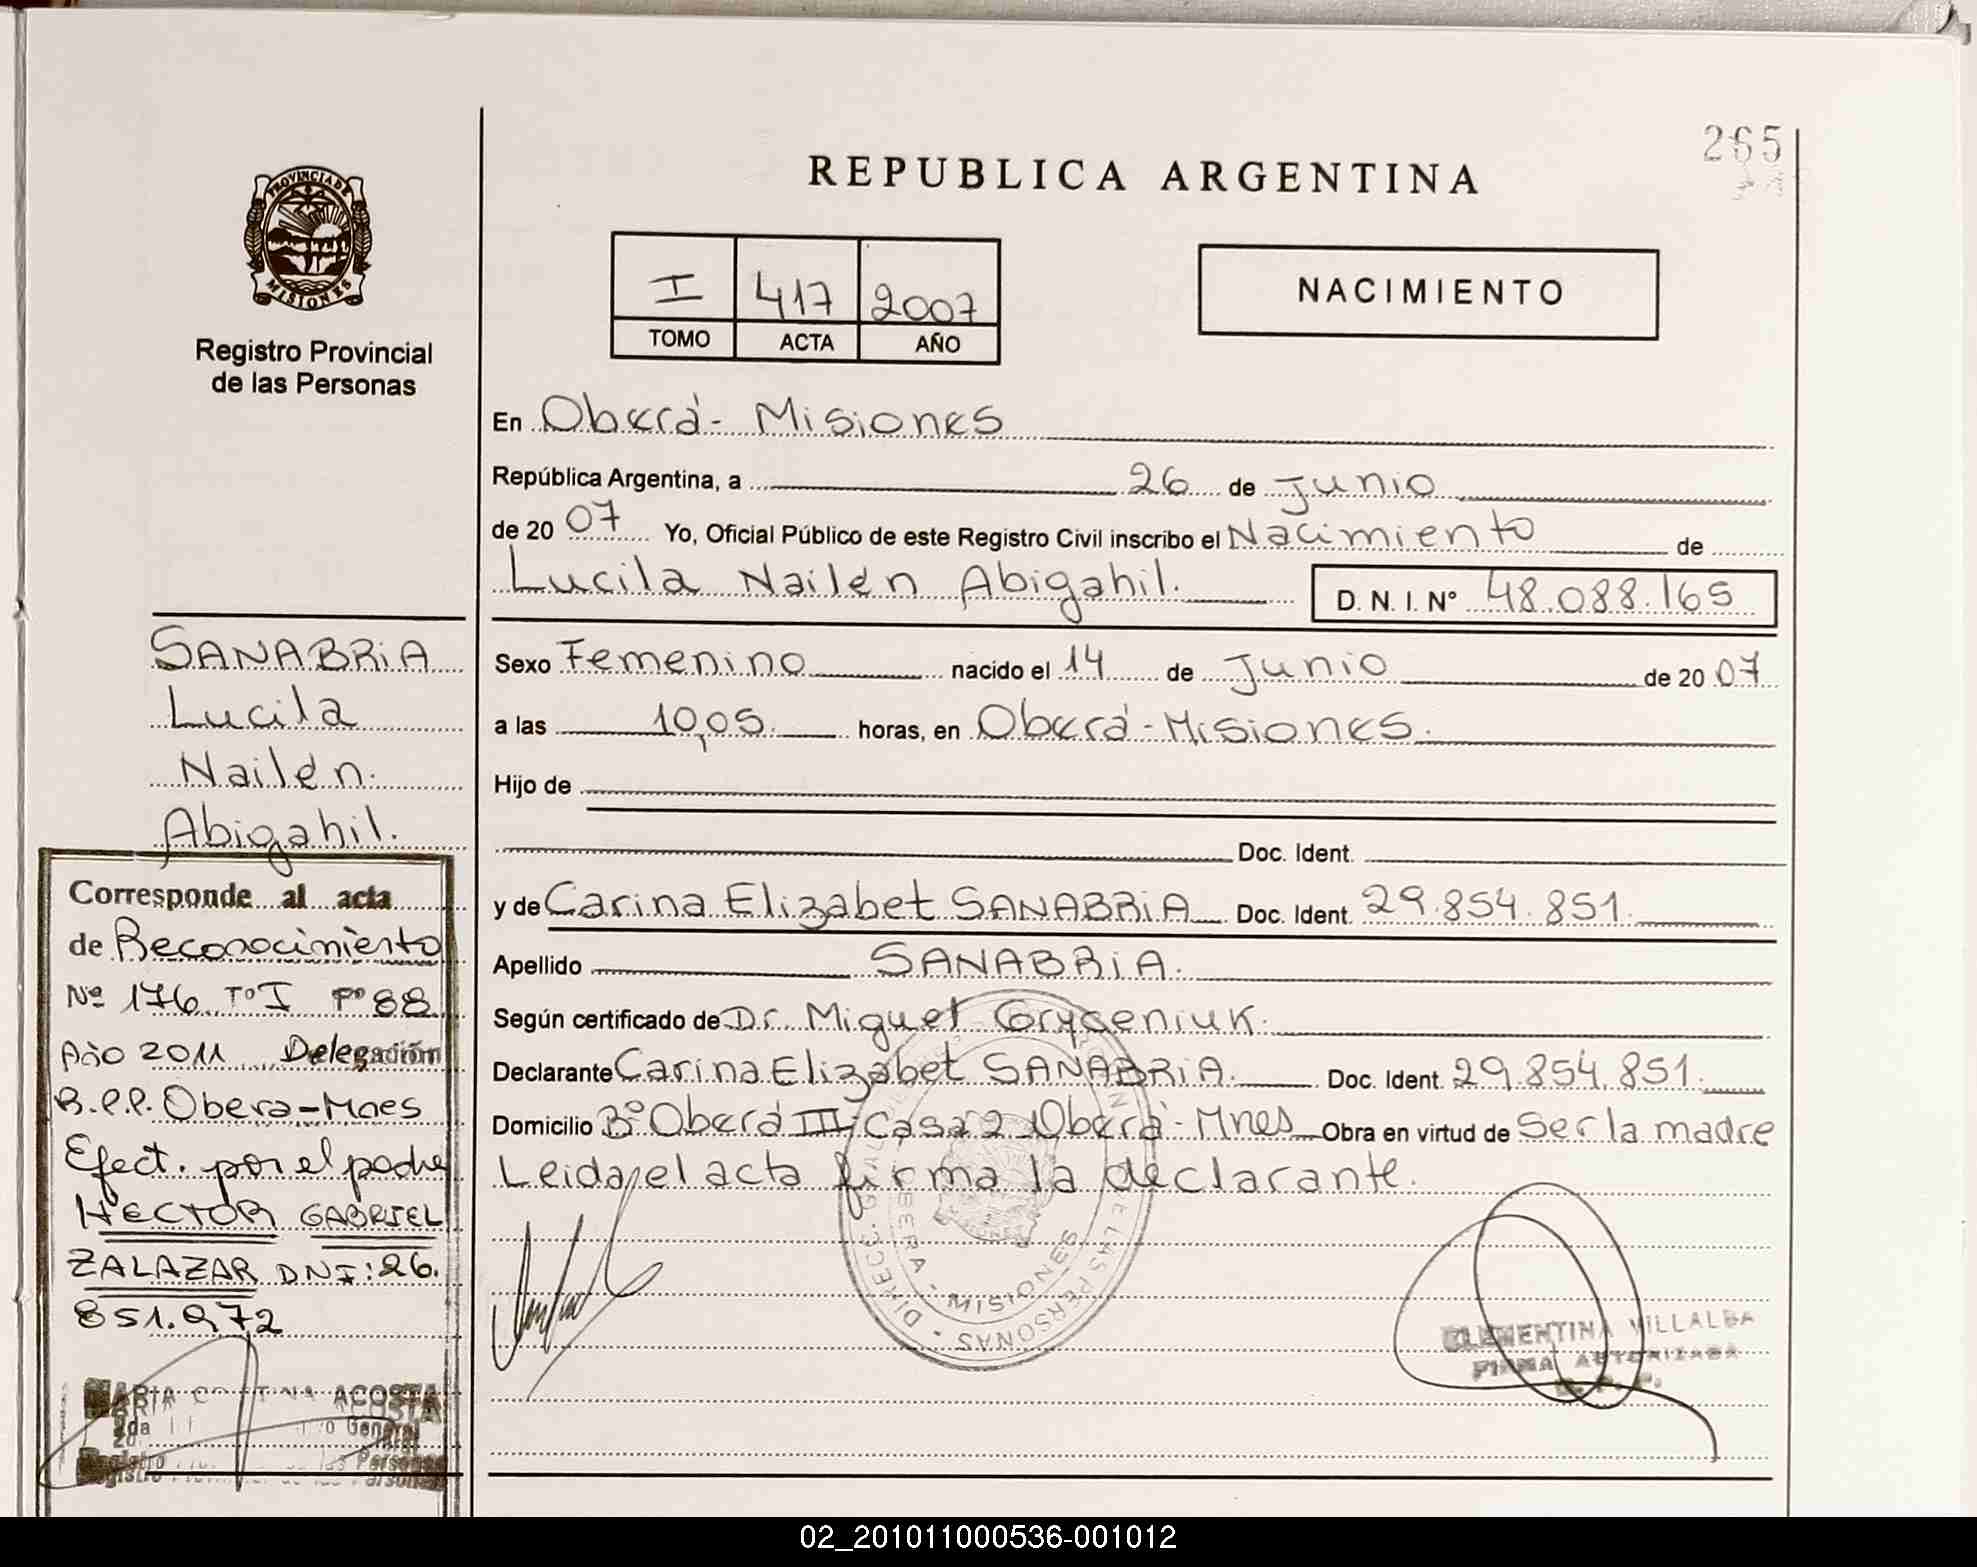 265
REPUBLICA ARGENTINA
PROVINCIA DE
MISIONES
Registro Provincial
de las Personas
I 417 2007
TOMO ACTA AÑO
NACIMIENTO
En Oberá - Misiones
República Argentina, a 26 de Junio
de 20 07 Yo, Oficial Público de este Registro Civil inscribo el Nacimiento de
Lucila Nailén Abigahil. D. N. I. Nº 48.088.165
Sexo Femenino nacido el 14 de Junio de 20 07
a las 10,05. horas, en Oberá - Misiones.
Hijo de
Doc. Ident.
y de Carina Elizabet SANABRIA Doc. Ident. 29.854.851.
Apellido SANABRIA.
Según certificado de Dr. Miguel Gryceniuk.
Declarante Carina Elizabet SANABRIA. Doc. Ident. 29.854.851.
Domicilio Bº Oberá III Casa 2 Oberá - Mnes Obra en virtud de Ser la madre
Leida el acta firma la declarante.
OBERA - MISIONES
DE LAS PERSONAS
CLEMENTINA VILLALBA
FIRMA AUTORIZADA
R. P. P.
SANABRIA
Lucila
Nailén.
Abigahil.
Corresponde al acta
de Reconocimiento
Nº 176 Tº I Fº 88
Año 2011 Delegación
R.P.P. Obera - Mnes
Efect. por el padre
HECTOR GABRIEL
ZALAZAR DNI: 26.
851.972
MARIA CRISTINA ACOSTA
General
Registro Provincial de las Personas
02_201011000536-001012